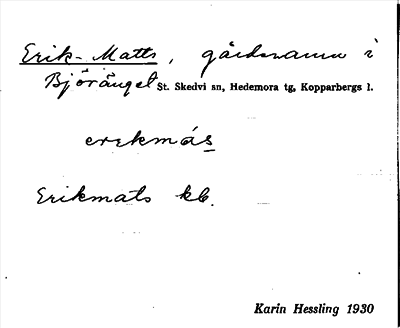 Erik-Matts, gårdsnamn i
Björänget St. Skedvi sn, Hedemora tg, Kopparbergs l.
erikmás
Erikmats kb.
Karin Hessling 1930